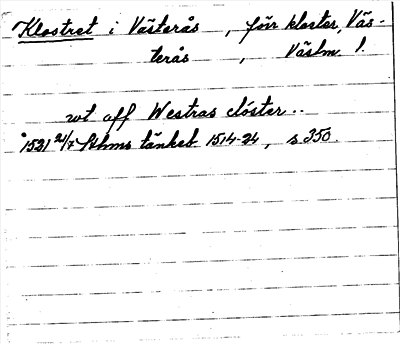 Klostret i Västerås, förr kloster, Väs-
terås, Västm. l.
wt aff Westras closter..
1521 2/7 Sthms tänkeb 1514-24, s 350.